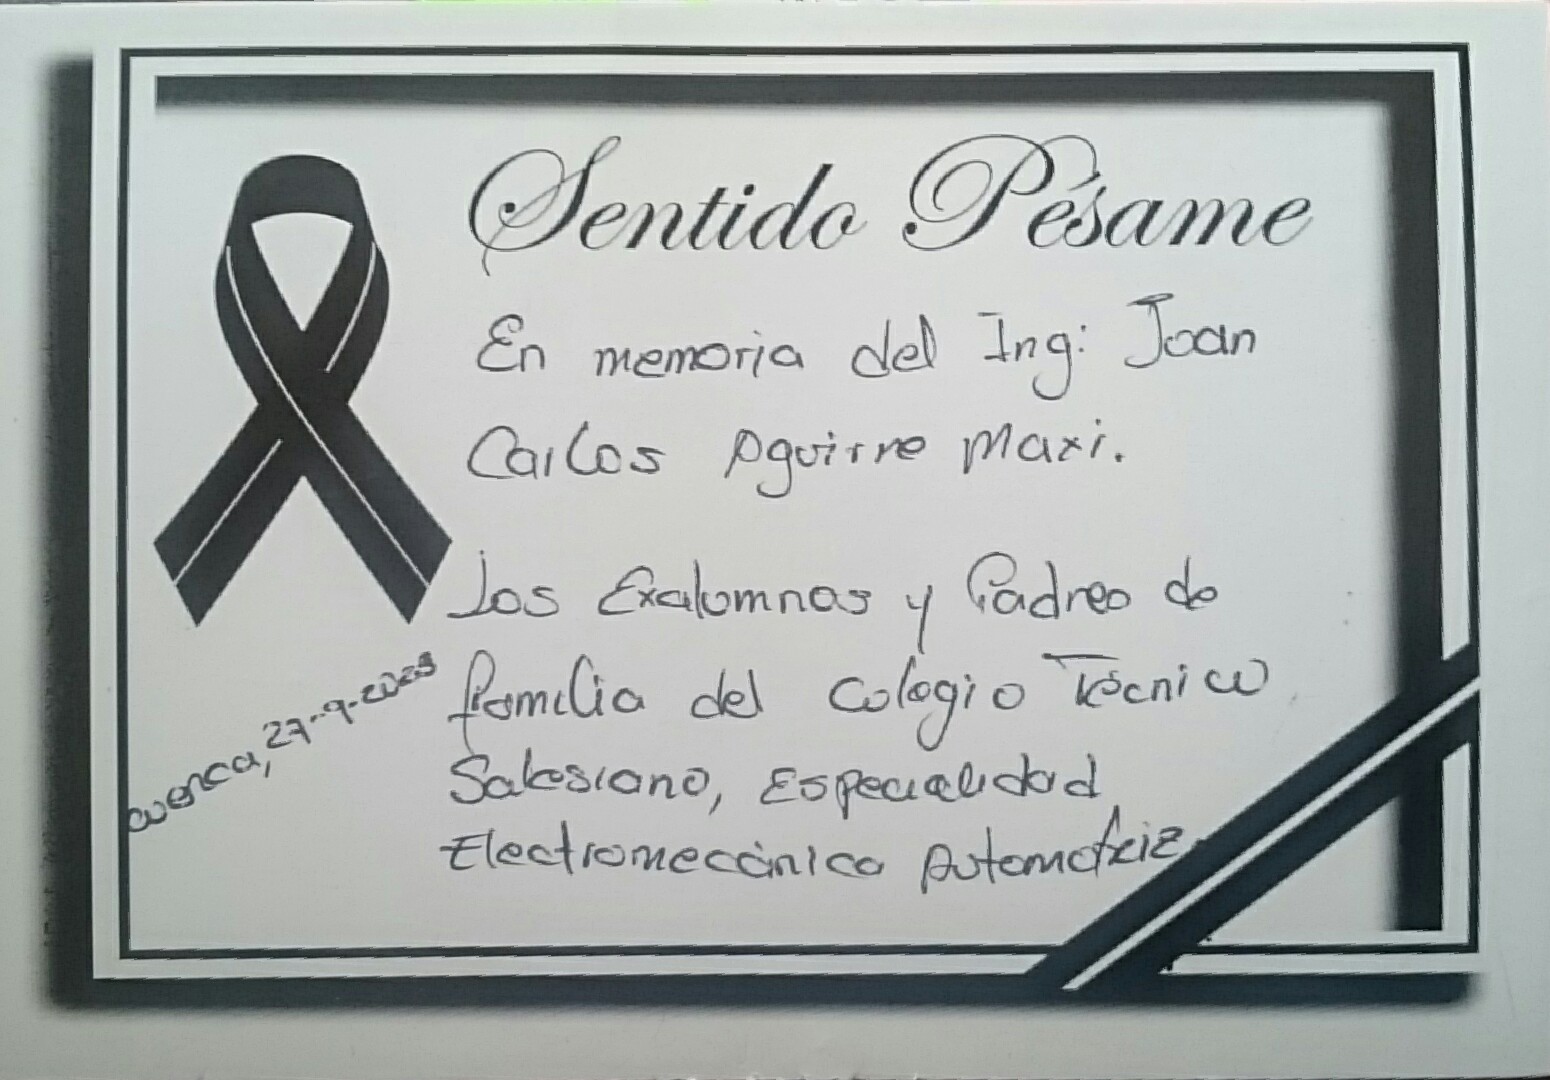 Sentido Pésame
En memoria del Ing: Joan
Carlos Aguirre Maxi.
Los Exalumnos y Padres de
familia del Colegio Técnico
Salesiano, Especialidad
Electromecánica Automotriz
Cuenca, 27-9-2025